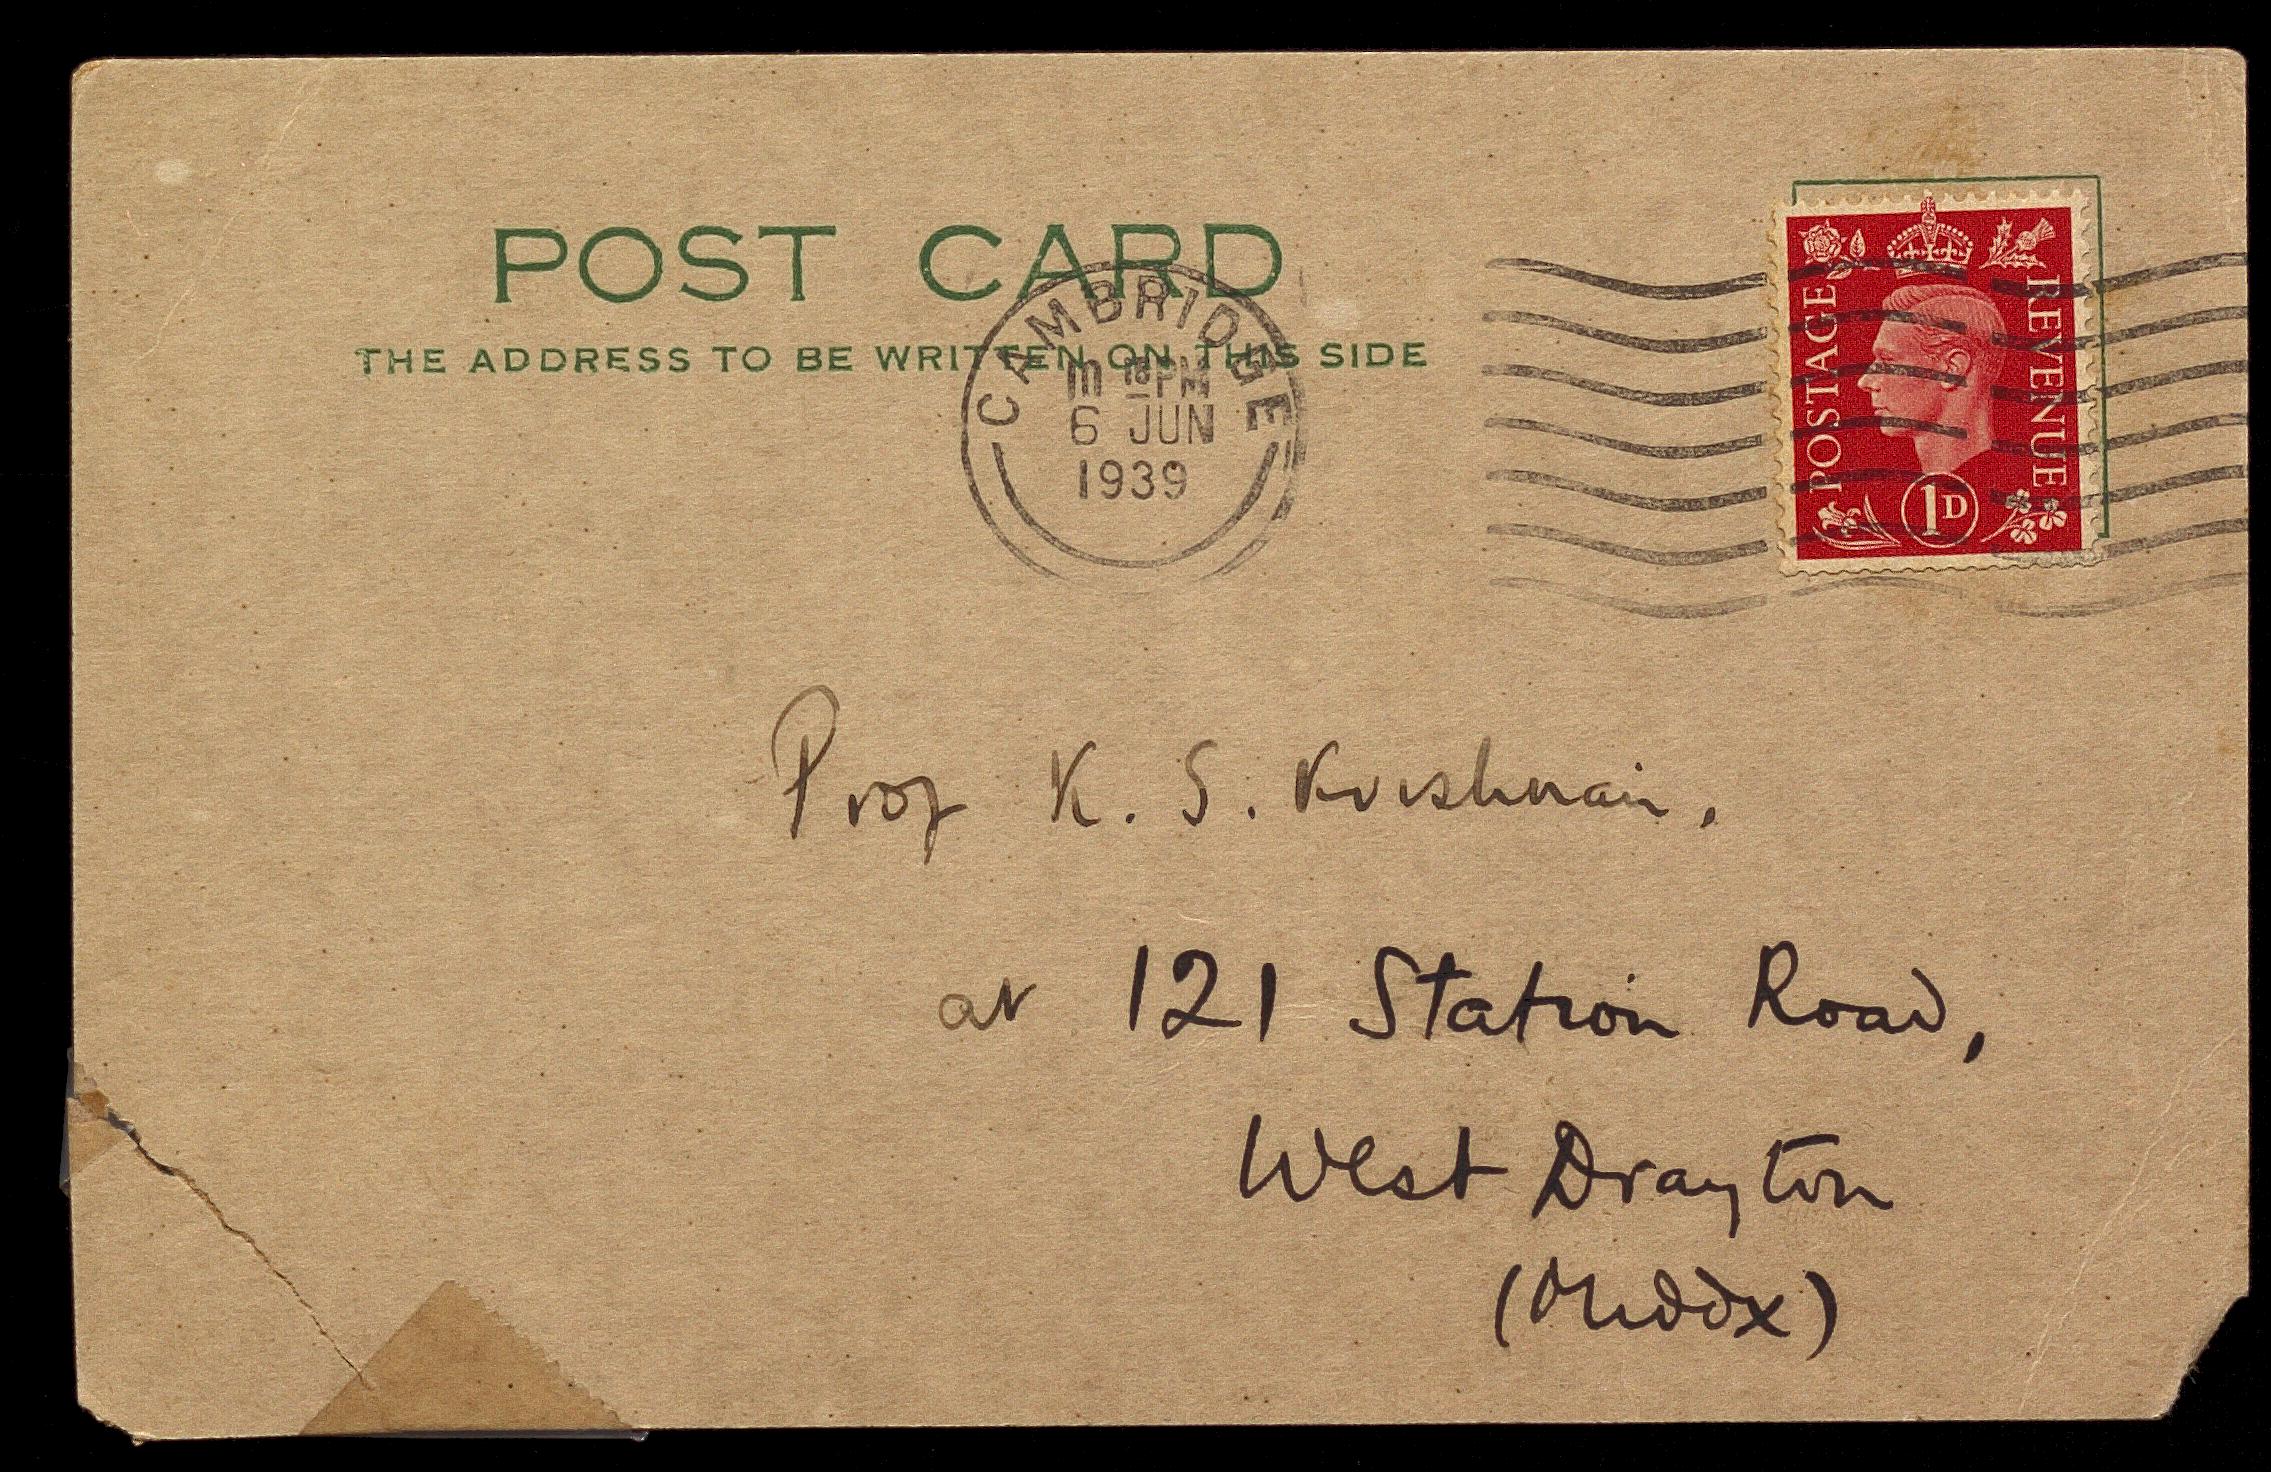 POST CARD
THE ADDRESS TO BE WRITTEN ON THIS SIDE
CAMBRIDGE
PM
6 JUN
1939
POSTAGE
REVENUE
1D
Prof K. S. Krishnan,
at 121 Station Road,
West Drayton
(Middx)